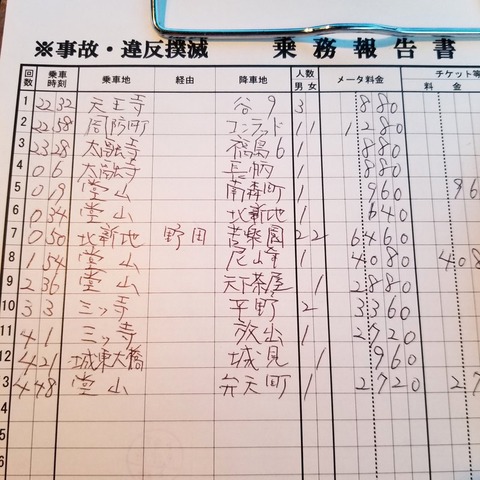 ※事故・違反撲滅 乗務報告書
回数 乗車時刻 乗車地 経由 降車地 人数 男 女 メータ料金 チケット等 料 金
1 22 32 天王寺 谷9 3 880
2 22 58 周防町 1 1 1280
3 23 28 太融寺 福島6 1 880
4 0 6 太融寺 長柄 1 880
5 0 19 堂山 南森町 1 960 96
6 0 34 堂山 北新地 1 640
7 0 50 北新地 野田 苦楽園 2 2 6460
8 1 54 堂山 尼山幸 1 4080 408
9 2 36 堂山 天下茶屋 1 2880
10 3 3 三ッ寺 平野 2 3360
11 4 1 三ッ寺 放出 1 2720
12 4 21 城東大橋 城見 1 960
3 4 48 堂山 弁天町 1 2720 27
4
5
6